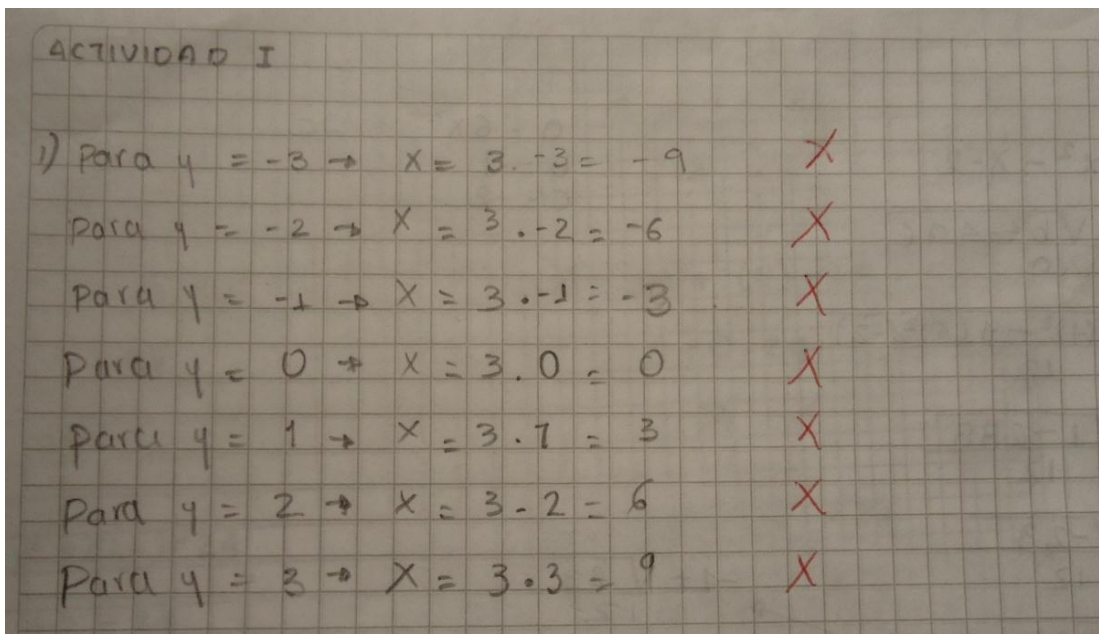 ACTIVIDAD I
1) Para y = -3 → x = 3 . -3 = -9 X
Para y = -2 → x = 3 . -2 = -6 X
Para y = -1 → x = 3 . -1 = -3 X
Para y = 0 → x = 3 . 0 = 0 X
Para y = 1 → x = 3 . 1 = 3 X
Para y = 2 → x = 3 - 2 = 6 X
Para y = 3 → x = 3 . 3 = 9 X